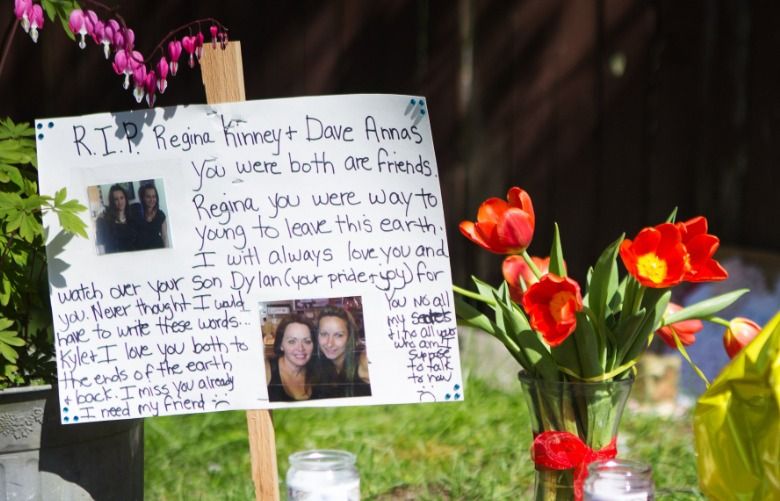 R.I.P. Regina Kinney + Dave Annas
You were both are friends.
Regina you were way to
young to leave this earth.
I will always love you and
watch over your son Dylan (your pride + joy) for
you. Never thought I would
have to write these words...
Kyle + I love you both to
the ends of the earth
+ back. I miss you already
I need my friend :(
You no all
my secrets
+ I no all your's
who am I
suppose
to talk
to now
:(